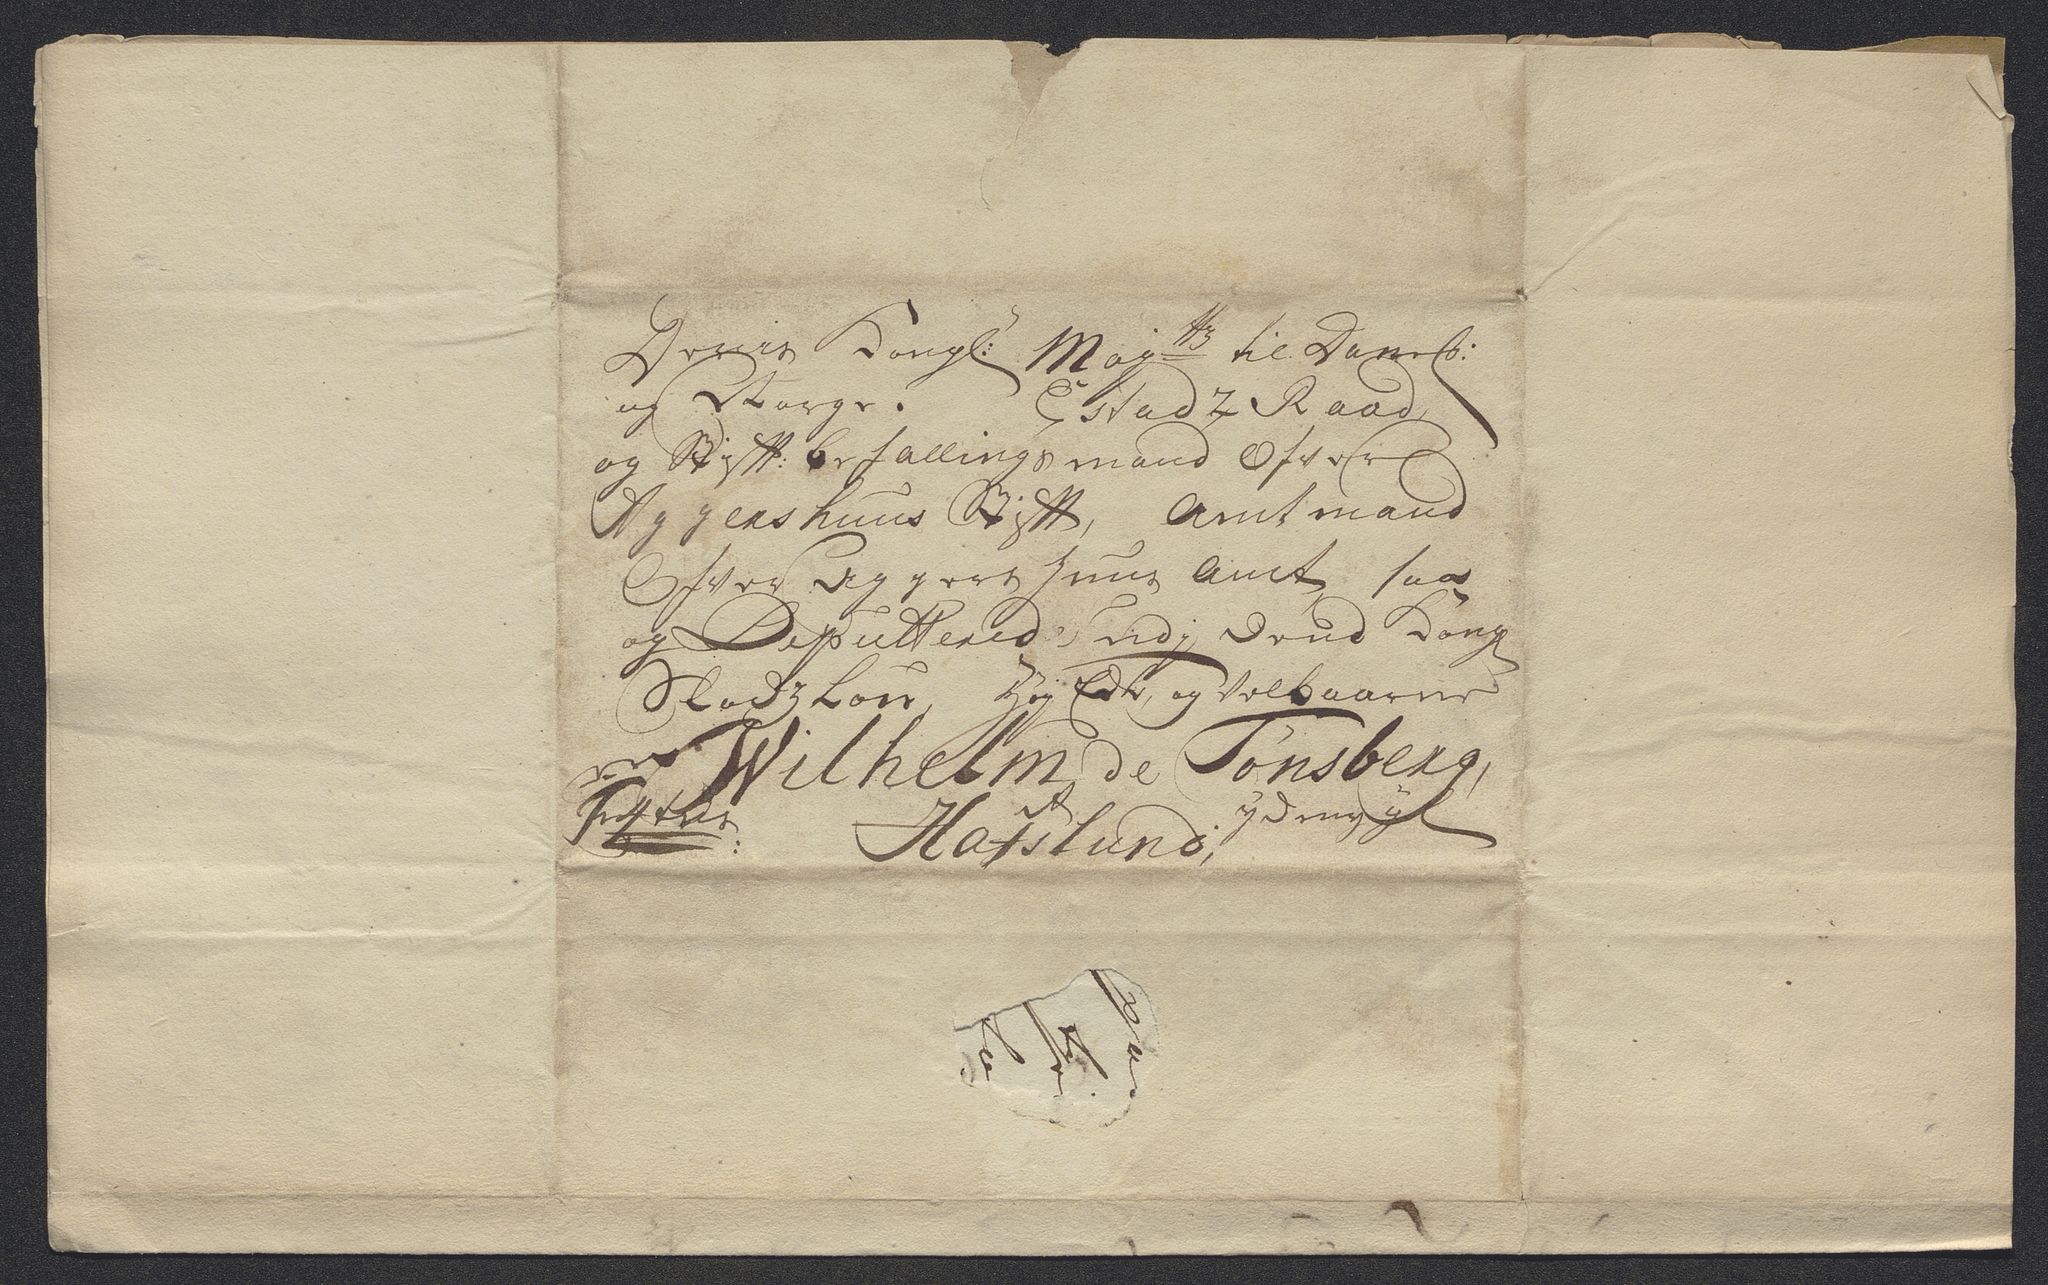 Deris Kongl: Maytts til Danㅤ:
og Norge. Estadz Raad,
og Stift: befallingsmand Ofver
Aggershuus Stift, Amtmand
Ofver Aggers huus Amt, saa
og Deputtered udj Dend Kongl
Slodzlou, Høy Edle, og Velbaarne
Wilhelm de Tonsberg,
A
Hafslund,